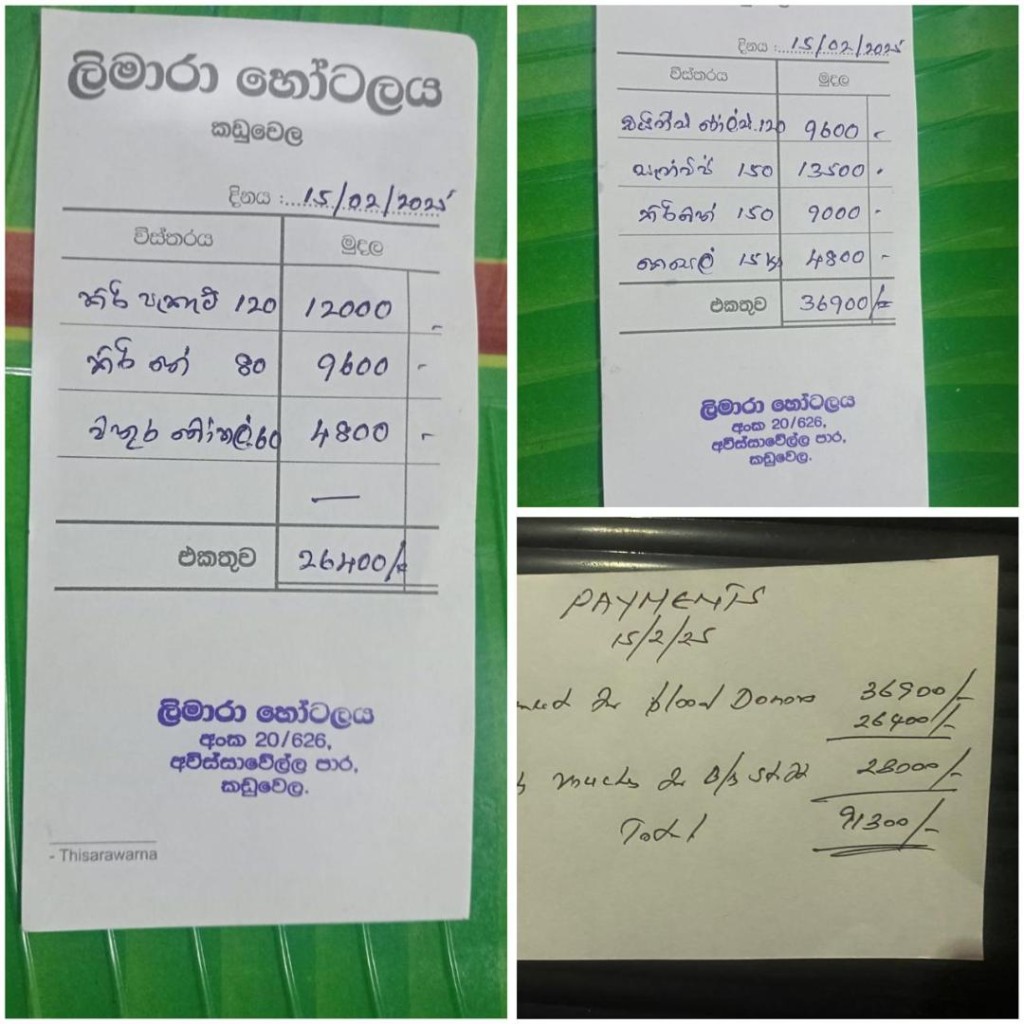 ලිමාරා හෝටලය
කඩුවෙල
දිනය : 15/02/2025
විස්තරය මුදල
කිරි පැකැට් 120 12000 -
කිරි තේ 80 9600 -
වතුර බෝතල් 60 4800 -
—
එකතුව 26400/=
ලිමාරා හෝටලය
අංක 20/626,
අවිස්සාවේල්ල පාර,
කඩුවෙල.
- Thisarawarna
දිනය : 15/02/2025
විස්තරය මුදල
120 9600 -
150 13500 -
150 9000 -
15 4800 -
එකතුව 36900/=
ලිමාරා හෝටලය
අංක 20/626,
අවිස්සාවේල්ල පාර,
කඩුවෙල.
PAYMENTS
15/2/25
Blood Donors 36900/-
26400/-
28000/-
Total 91300/-